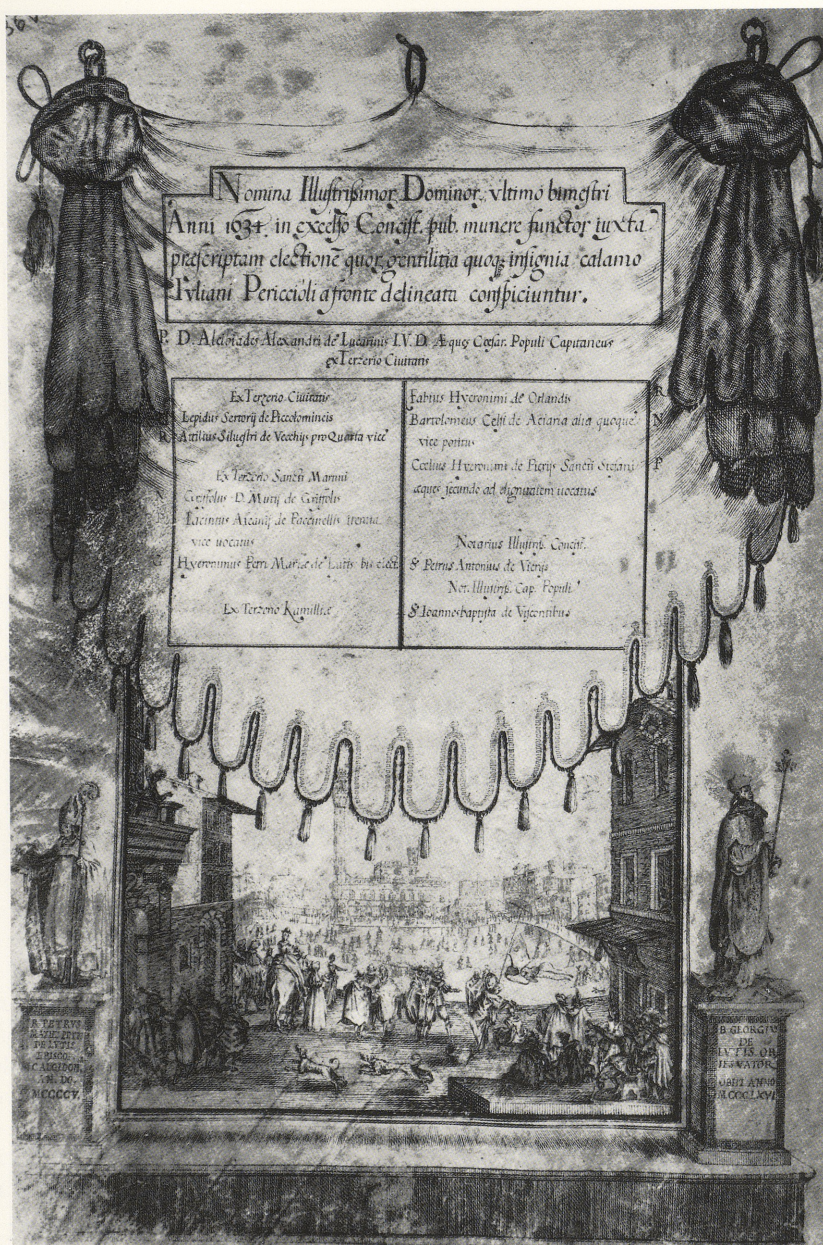 Nomina Illustrißimor. Dominor. ultimo bimestri
Anni 1634. in excelso Concist. pub. munere functor. iuxta
præscriptam electionē quor. gentilitia quoq; insignia calamo
Iuliani Periccioli a fronte delineata conspiciuntur.
P. D. Alcibiades Alexandri de Lucarinis I.V.D. Æques Cæsar. Populi Capitaneus
ex Terzerio Ciuitatis
Ex Terzerio Ciuitatis
Lepidus Sertorij de Piccolomineis
R Attilius Siluestri de Vecchijs pro Quarta vice
Ex Terzerio Sancti Martini
N D. Mutij de Griffolis
Ascanij de
vice uocatus
G Hyeronimus Petri Mariæ de Lutis bis elect.
Ex Terzerio Kamilliæ
Fabius Hyeronimi de Orlandis R
Bartolomeus Celsi de Aciaria alia quoque N
vice potitus
Cœlius Hyeronimi de Pierijs Sancti Stefani P
æques secundo ad dignitatem uocatus
Notarius Illustriß. Concist.
S. Petrus Antonius de Vierijs
Not. Illustriß. Cap. Populi
S. Ioannesbaptista de Viscontibus
B. PETRVS
DE LVTIS
EPISCO.
CALCIDON.
AN. DO.
MCCCCV.
B. GEORGIVS
DE
LVTIS OB
SERVATOR
OBIIT ANNO